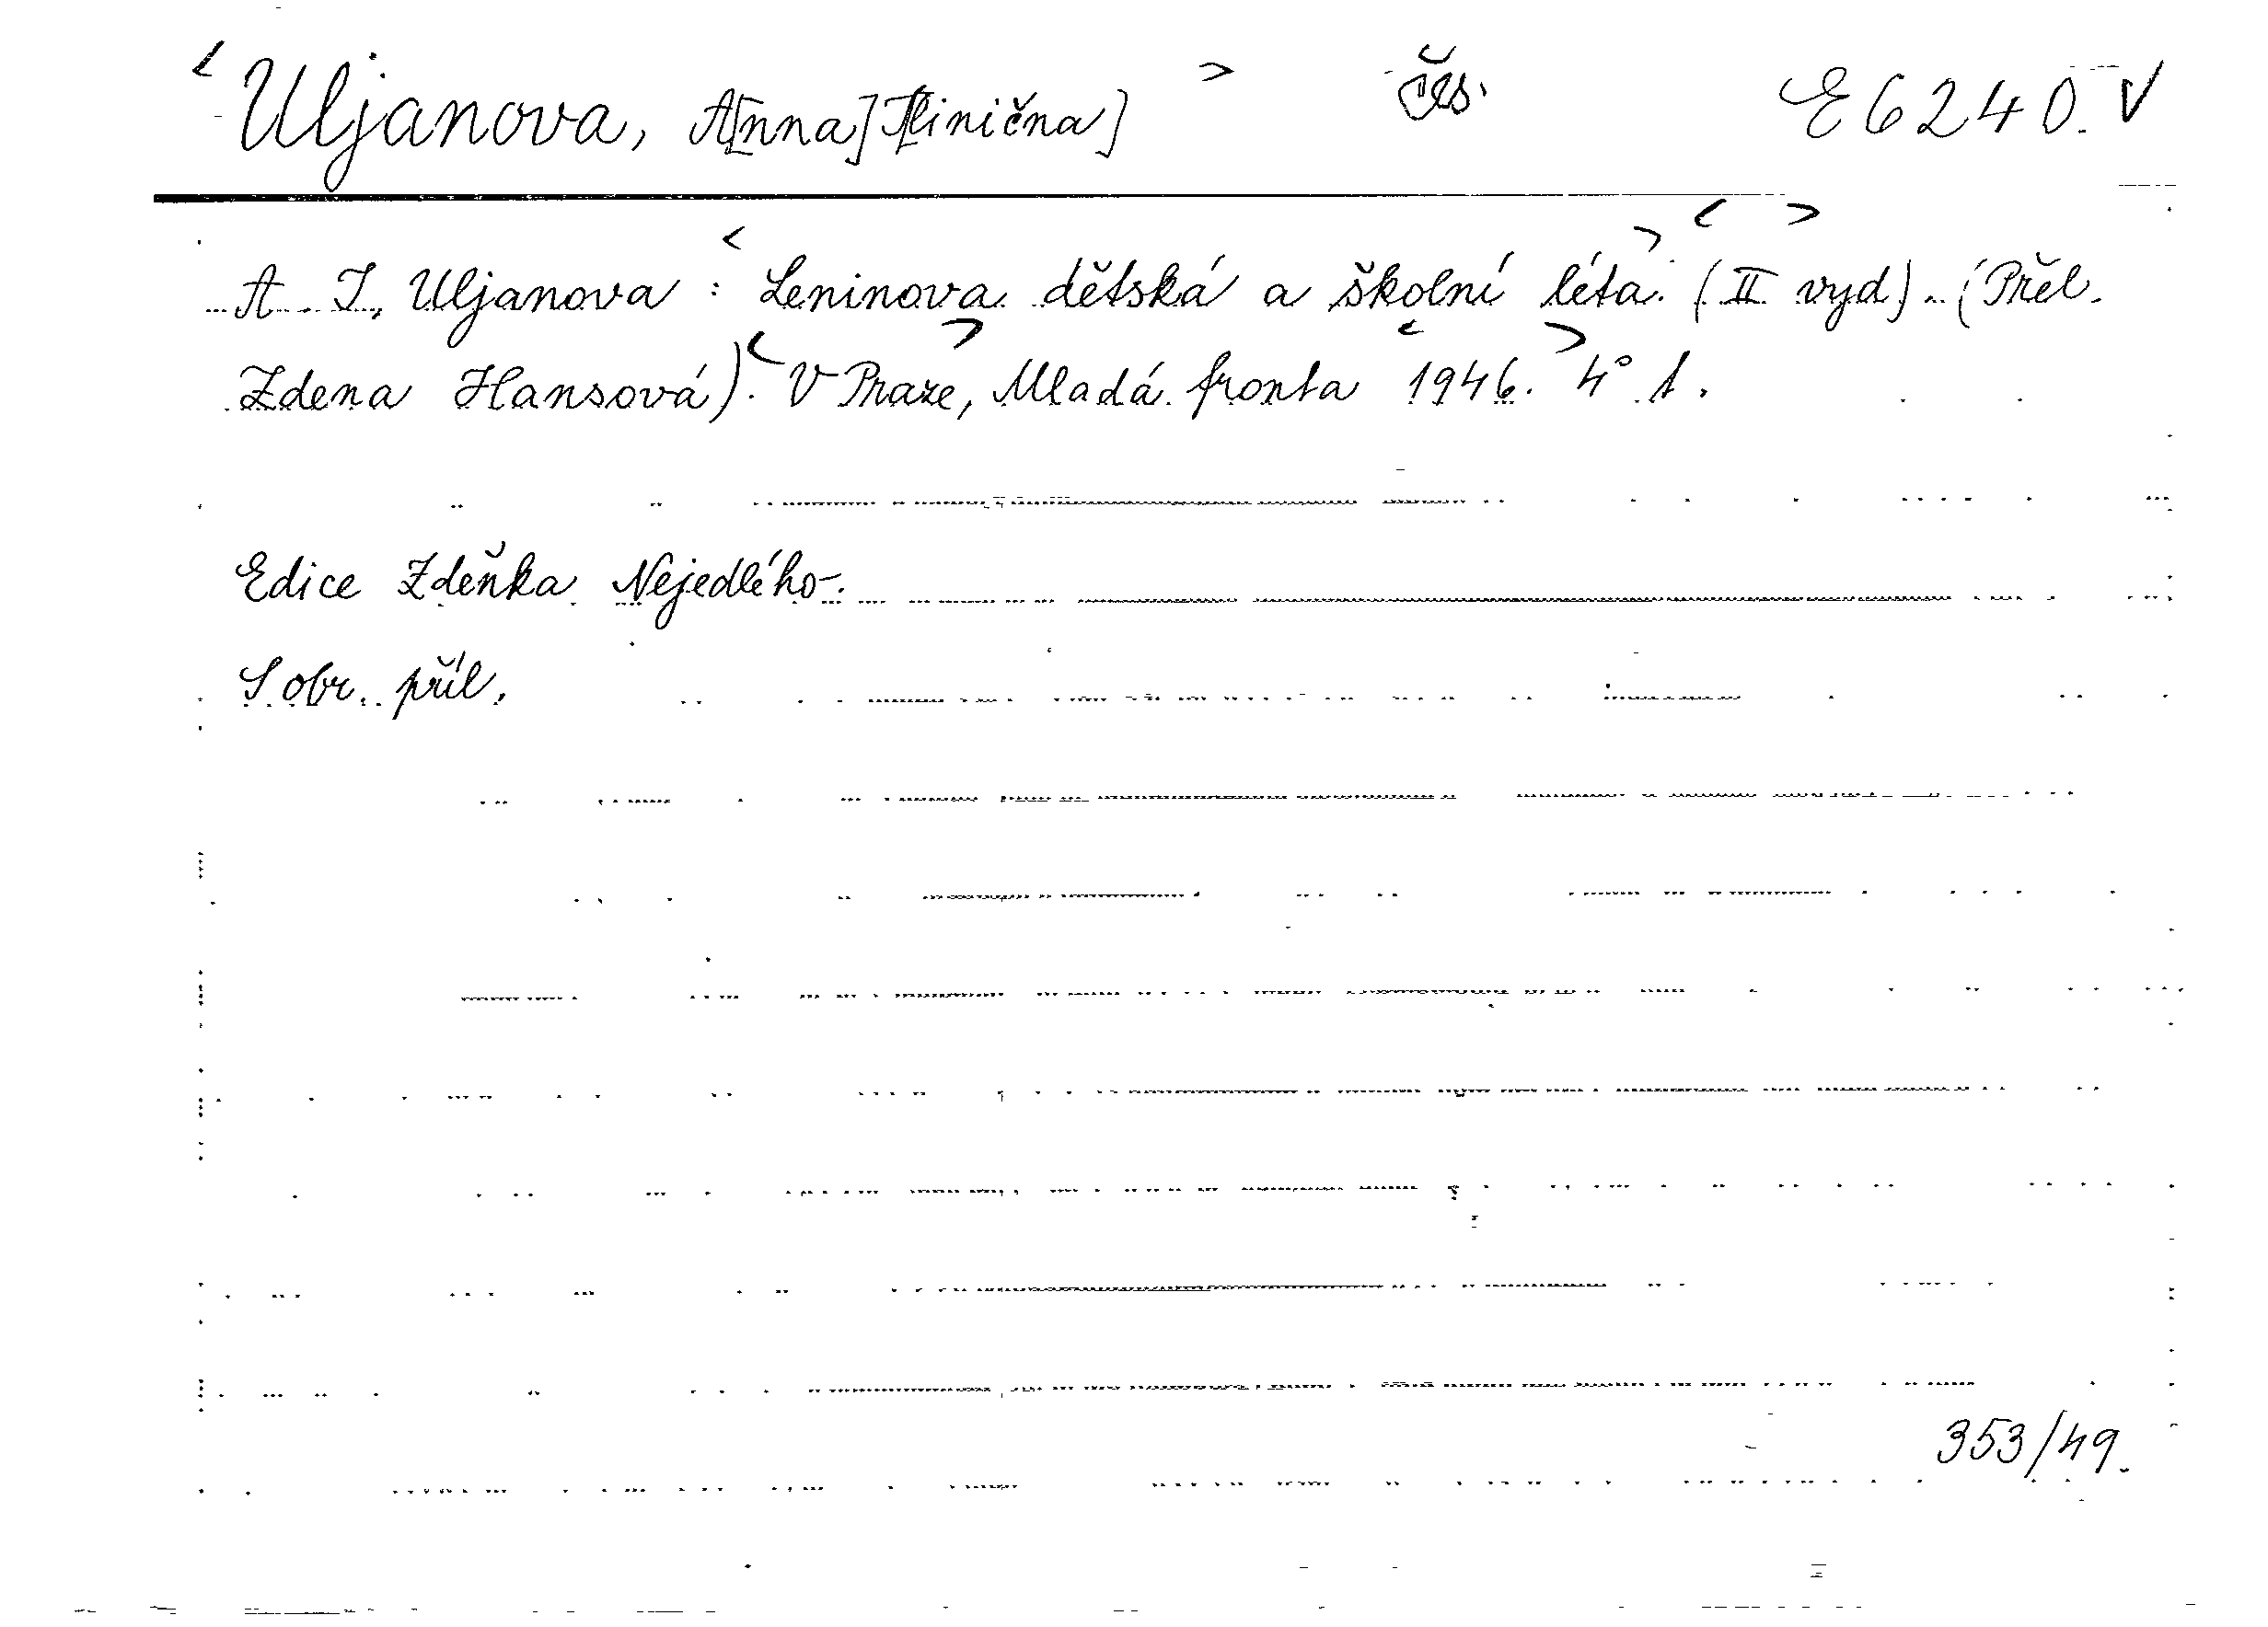 < Uljanova, A[nna] I[linična] > čes. E 6240. √
A. I. Uljanova : < Leninova dětská a školní léta. > < (II vyd). > (Přel.
Zdena Hansová). < V Praze, > Mladá fronta < 1946. > 4° 1.
Edice Zdeňka Nejedlého.
S obr. příl.
353/49.